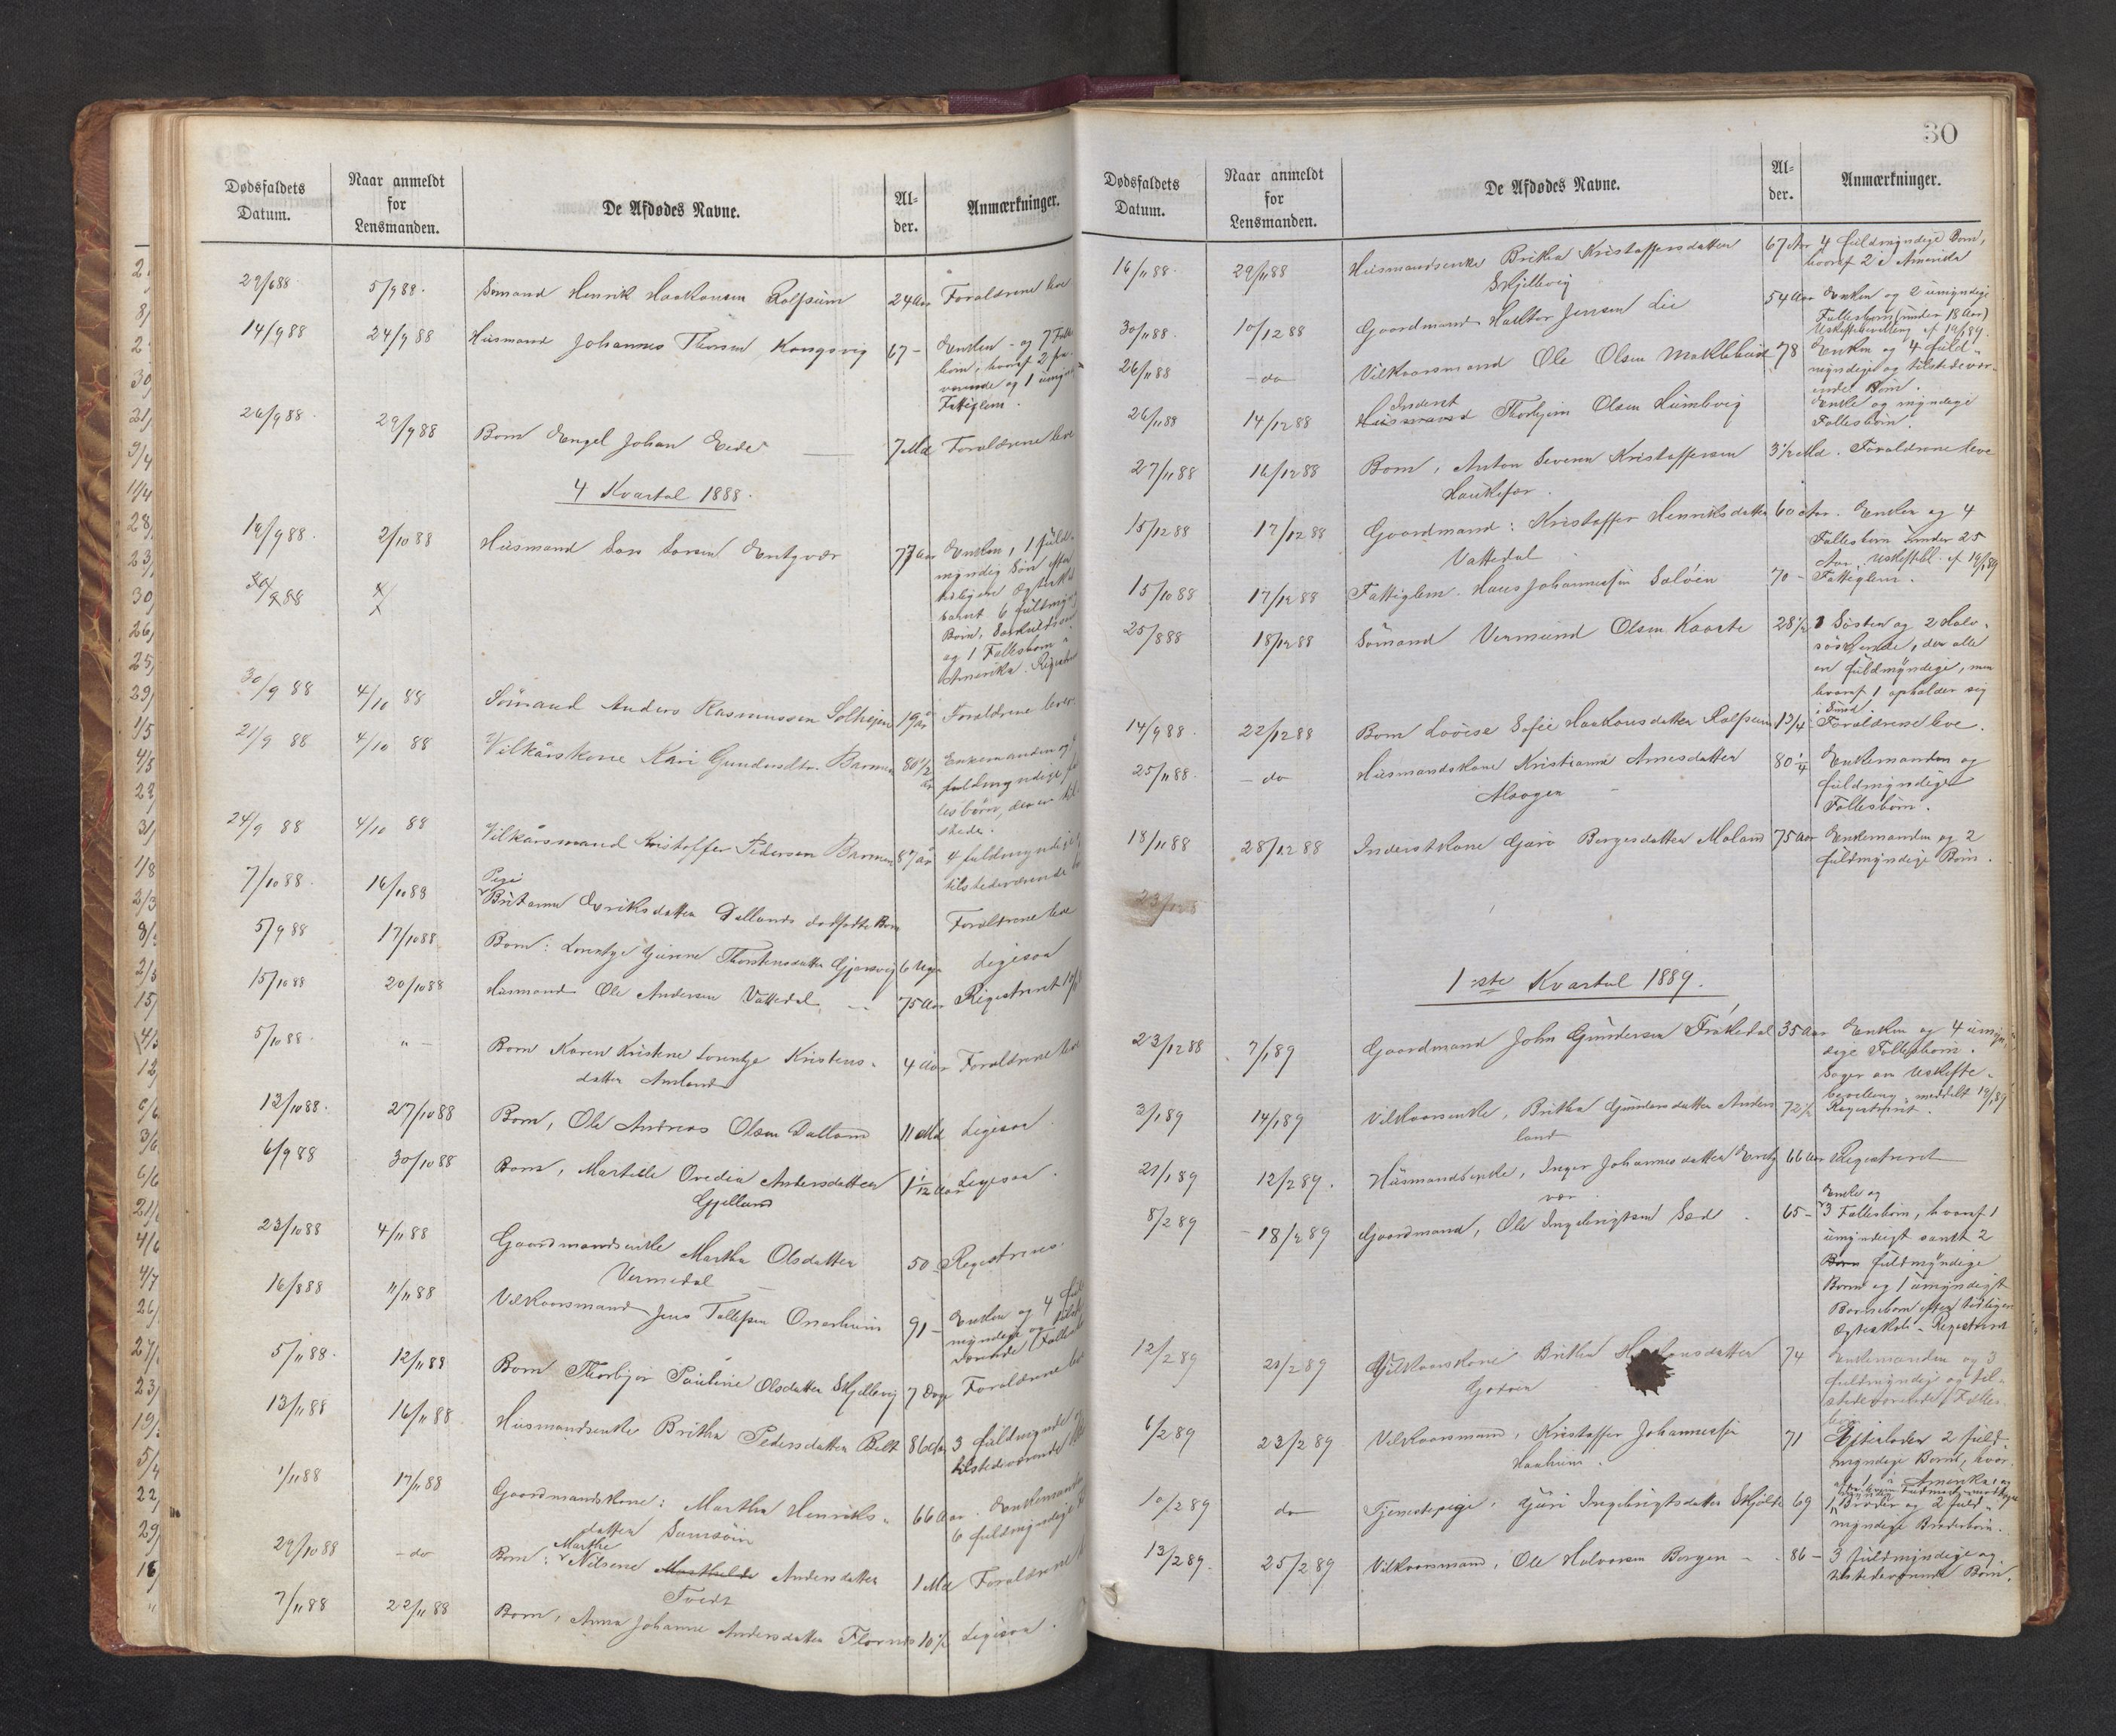 Dødsfaldets
Datum.
Naar anmeldt
for
Lensmanden.
De Afdødes Navne.
Al-
der.
Anmærkninger.
29/6 88 5/9 88. Sømand Henrik Haakonsen Rolfsum 24 Aar Forældrene leve
14/9 88 24/9 88 Husmand Johannes Thorsen Kongsvig 67 – Enken – og 7 Fælles
børn, hvoraf 2 fra
værende og 1 umyn
Fattiglem.
26/9 88 29/9 88 Barn Engel Johan Eide 7 Md Forældrene leve
4 Kvartal 1888.
14/9 88. 2/10 88 Husmand Lars Larsen Entzvær 77 Aar Enken, 1 fuld-
myndig Søn efter
tidligere Ægteskab
samt 6 fuldmyn
Børn, Særkuldsøn
og 1 Fællesbarn i
Amerika. Registr
30/9 88 4/
30/9 88 4/10 88 Sømand Anders Rasmussen Solheim 19 år Forældrene lever
21/9 88 4/10 88 Vilkårskone Kari Gundersdtr. Barmen 80 1/2 år Enkemanden og
fuldmyndige fæl
lesbørn, der er til
stede.
24/9 88 4/10 88 Vilkårsmand Kristoffer Pedersen Barmen 87 år 4 fuldmyndige
tilstedeværende
Pige
7/10 88. 16/10 88 Britanna Eriksdatter Dallands dødfødte Barn Forældrene leve
5/9 88 17/10 88 Barn: Lorentze Gurine Thorstensdatter Gjønsvig 6 Uger Ligesaa
15/10 88 20/10 88 Husmand Ole Andersen Vattedal 75 Aar Registreret
5/10 88. " – Barn Karen Kristine Lorentze Kristens-
datter Amland 4 Aar Forældrene leve
12/10 88. 27/10 88 Barn, Ole Andreas Olsen Dalland 11 Md Ligesaa.
6/9 88 30/10 88 Barn, Martille Ovedia Andersdatter
Gjelland 1 1/12 Aar Ligesaa.
23/10 88 4/11 88 Gaardmandsenke Martha Olsdatter
Vermedal 50 Registreres
16/8 88 11/11 88 Vilkaarsmand Jens Tollefsen Onarheim 91 – Enken og 4 fuld
myndige og tilste
værende Fællesbø
5/11 88. 12/11 88 Barn Thorbjør Pauline Olsdatter Skjellevig 7 Dage Forældrene leve
13/11 88 16/11 88 Husmandsenke Britha Pedersdatter Belt 86 Aar 3 fuldmynde og
tilstedeværende
1/11 88 17/11 88 Gaardmandskone: Martha Henriks-
datter Samsøin 66 Aar. Enkemanden
6 fuldmyndige
Marthe
29/10 88 – do Barn: Nilsene Andersdatter
Tvedt 1 Md Forældrene
7/11 88 22/11 88 Barn, Anna Johanne Andersdatter 10 1/2 Ligesaa.
30
Dødsfaldets
Datum.
Naar anmeldt
for
Lensmanden.
De Afdødes Navne.
Al-
der.
Anmærkninger.
16/11 88. 29/11 88 Husmandsenke Britha Kristoffersdatter
Skjellevig 67 Aar 4 fuldmyndige Børn,
hvoraf 2 i Amerika
30/11 88. 10/12 88 Gaardmand Halltor Jensen Lie 54 Aar Enken og 2 umyndige
Fællesbørn (under 18 Aar)
Uskiftebevilling af 19/1 89.
26/11 88 – do Vilkaarsmand Ole Olsen Møklebust 78 Enken og 4 fuld-
myndige og tilstedevær-
ende Børn.
Inderst
26/11 88 14/12 88 Husmand Thorbjørn Olsen Humbvig Enke og myndige
Fællesbørn.
27/11 88 16/12 88 Barn, Anton Severin Kristoffersen
Haukefær. 3 1/2 Md. Forældrene leve
15/12 88 17/12 88 Gaardmand: Kristoffer Henriksdatter
Vattedal 60 Aar. Enken og 4
Fællesbørn under 25
Aar. Uskiftebl. af 19/1 89
15/10 88 17/12 88 Fattiglem. Hans Johannessen Saløen 70 – Fattiglem.
25/8 88 18/12 88 Sømand Vermund Olsen Kaarte 28 1/2 1 Søster og 2 Halv-
søskende, der alle
ere fuldmyndige, men
hvoraf 1 opholder sig
14/9 88. 22/12 88 Barn Lovise Sofie Haakonsdatter Rolfsum 13/4 Forældrene leve.
25/11 88. – do Husmandskone Kristianna Arnesdatter
Haagen 80 1/4 Enkemanden og
fuldmyndige
Fællesbørn.
18/11 88 28/12 88 Inderstkone Guro Børgesdatter Moland 75 Aar Enkemanden og 2
fuldmyndige Børn.
1ste Kvartal 1889.
23/12 88 7/1 89 Gaardmand John Gundersen Frøkedal 35 Aar Enken og 4 umyn-
dige Fællesbørn.
Søger om Uskifte-
bevilling, meddelt 19/1 89
3/1 89 14/1 89 Vilkaarsenke, Britha Gundersdatter Anders
land 72 1/2 Registreret.
21/1 89 12/2 89. Husmandsenke, Inger Johannesdatter Entz
vær. 66 Aar Registreret
Enke og
8/2 89 – 18/2 89 Gaardmand, Ole Ingebrigtsen Sæd 65 – 3 Fællesbørn, hvoraf 1
umyndigt samt 2
Børn fuldmyndige
Børn og 1 umyndigt
Barnebarn efter tidligere
Ægteskab – Registreret
12/2 89 21/2 89 Vilkaarskone Britha Haakonsdatter
Godøen 74 Enkemanden og 3
fuldmyndige og til-
stedeværende Fælles-
børn
6/2 89 23/2 89 Vilkaarsmand, Kristoffer Johannessen
Haaheim. 71 Efterlader 2 fuld-
myndige Børn, hvor
af 1 i Amerika
10/2 89 do Tjenestepige, Guri Ingebrigtsdatter Skjølde 69 1 Broder og 2 fuld-
myndige Broderbørn.
13/2 89. 25/2 89 Vilkaarsmand, Ole Halvorsen Borgen – 86 – 3 fuldmyndige og
tilstedeværende Børn.